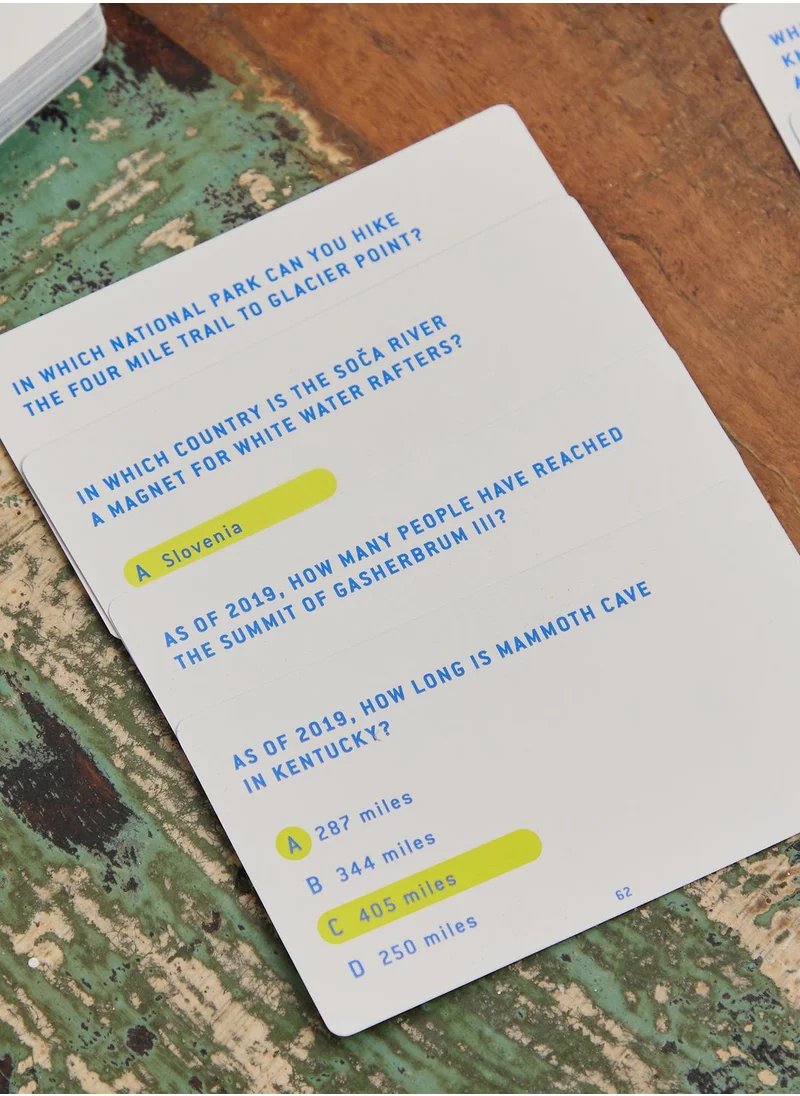 IN WHICH NATIONAL PARK CAN YOU HIKE
THE FOUR MILE TRAIL TO GLACIER POINT?
IN WHICH COUNTRY IS THE SOČA RIVER
A MAGNET FOR WHITE WATER RAFTERS?
A Slovenia
AS OF 2019, HOW MANY PEOPLE HAVE REACHED
THE SUMMIT OF GASHERBRUM III?
AS OF 2019, HOW LONG IS MAMMOTH CAVE
IN KENTUCKY?
A 287 miles
B 344 miles
C 405 miles
D 250 miles
62